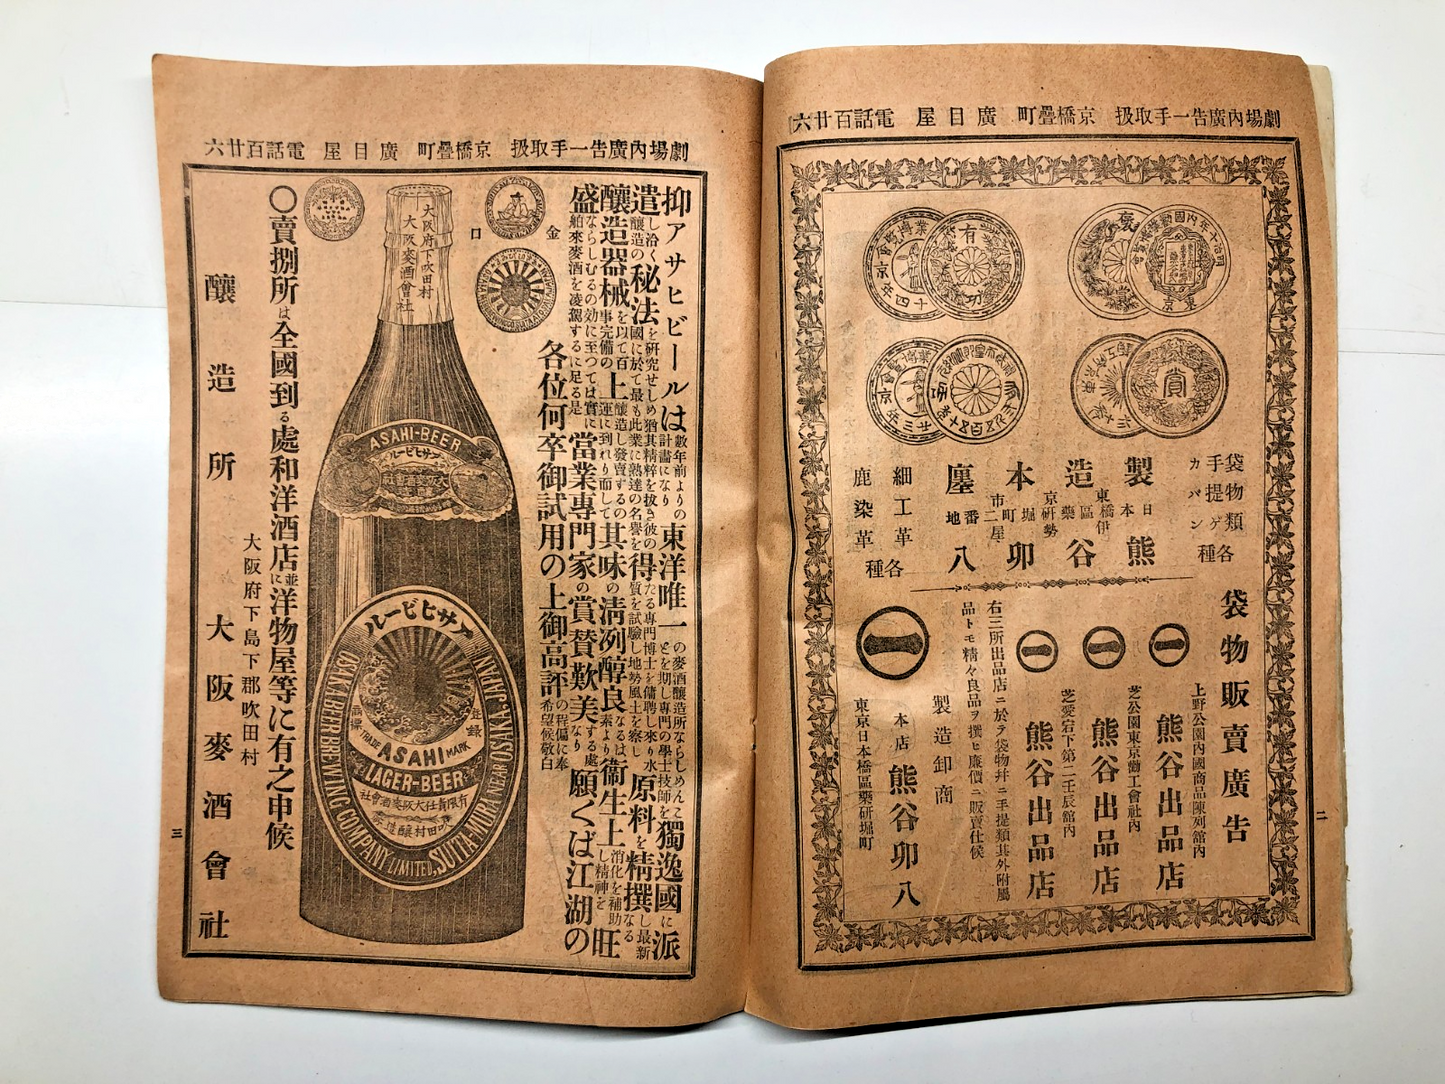 劇場内廣告一手取扱 京橋疊町 廣目屋 電話百廿六
袋物類
手提ゲ
カバン
各種
製造本廛
日本橋區
東京
藥研堀町
熊谷卯八
細工革
鹿染革
各種
袋物販賣廣告
上野公園内國商品陳列館内
熊谷出品店
芝公園東京勸工會社内
熊谷出品店
芝愛宕下第二壬辰館内
熊谷出品店
右三所出品店ニ於テ袋物幷ニ手提類其外附屬
品トモ精々良品ヲ撰ヒ廉價ニ販賣仕候
製造卸商
本店 熊谷卯八
東京日本橋區藥研堀町
二
劇場内廣告一手取扱 京橋疊町 廣目屋 電話百廿六
抑アサヒビールは數年前よりの計畫になり東洋唯一の麥酒釀造所ならしめんことを期し專門の學士技師を獨逸國に派
遣し洽く釀造の秘法を研究せしめ猶其精粹を拔き彼の國に於て最も此業に熟達の名譽を得たる專門博士を傭聘し來り水質を試驗し地勢風土を察し原料を精撰し最新なる
釀造器械を以て百事完備の上釀造し發賣するの運に到れり而して其味の淸冽醇良なるは素より衞生上消化を補助し精神を旺
盛ならしむるの効に至つては實に舶來麥酒を凌駕するに足る是當業專門家の賞賛歎美する處なり願くば江湖の
各位何卒御試用の上御高評の程偏に奉希望候敬白
金
口
大阪府下吹田村
大阪麥酒會社
ASAHI-BEER
アサヒビール
アサヒビール
登錄
商標
TRADE MARK
ASAHI
LAGER-BEER
有限責任大阪麥酒會社
吹田村釀造
OSAKA BEER BREWING COMPANY LIMITED, SUITA-MURA NEAR OSAKA, JAPAN
〇賣捌所は全國到る處和洋酒店並に洋物屋等に有之申候
大阪府下島下郡吹田村
釀造所 大阪麥酒會社
三